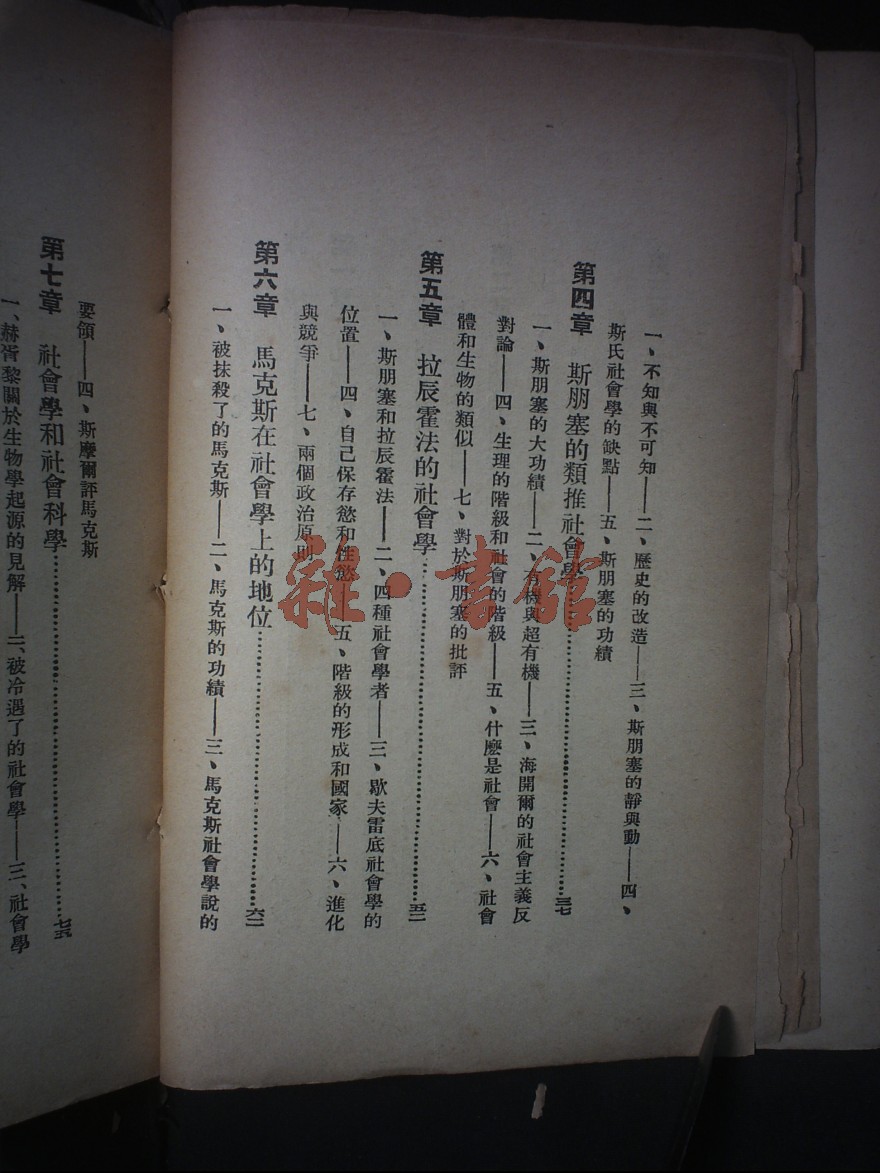 一、不知與不可知——二、歷史的改造——三、斯朋塞的靜與動——四、
斯氏社會學的缺點——五、斯朋塞的功績
第四章　斯朋塞的類推社會學…………三七
一、斯朋塞的大功績——二、有機與超有機——三、海開爾的社會主義反
對論——四、生理的階級和社會的階級——五、什麽是社會——六、社會
體和生物的類似——七、對於斯朋塞的批評
第五章　拉辰霍法的社會學…………五二
一、斯朋塞和拉辰霍法——二、四種社會學者——三、歇夫雷底社會學的
位置——四、自己保存慾和性慾——五、階級的形成和國家——六、進化
與競爭——七、兩個政治原則
第六章　馬克斯在社會學上的地位…………六二
一、被抹殺了的馬克斯——二、馬克斯的功績——三、馬克斯社會學說的
要領——四、斯摩爾評馬克斯
第七章　社會學和社會科學…………七五
一、赫胥黎關於生物學起源的見解——二、被冷遇了的社會學——三、社會學
雜·書館